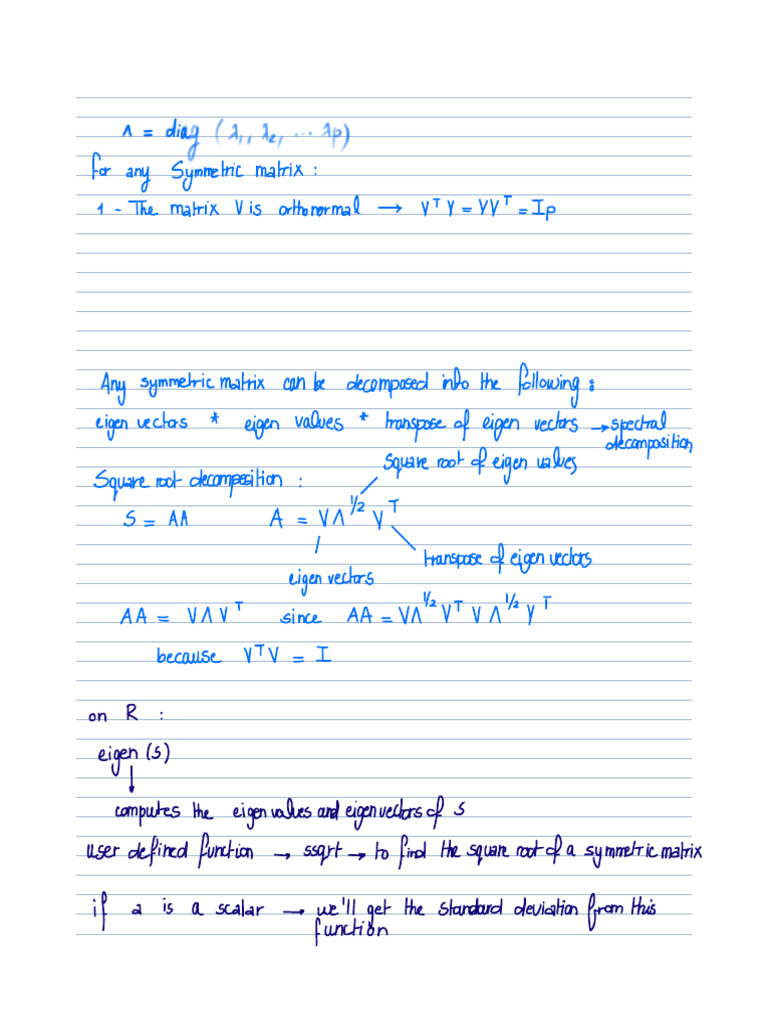 Λ = diag (λ1, λ2, ... λp)
for any Symmetric matrix :
1 - The matrix V is orthonormal → VᵀV = VVᵀ = Ip
Any symmetric matrix can be decomposed into the following :
eigen vectors * eigen values * transpose of eigen vectors → spectral
decomposition
square root of eigen values
Square root decomposition :
S = AA A = VΛ^1/2 Vᵀ
transpose of eigen vectors
eigen vectors
AA = VΛVᵀ since AA = VΛ^1/2 Vᵀ V Λ^1/2 Vᵀ
because VᵀV = I
on R :
eigen (s)
↓
computes the eigen values and eigen vectors of s
user defined function → ssqrt → to find the square root of a symmetric matrix
if a is a scalar → we'll get the standard deviation from this
function